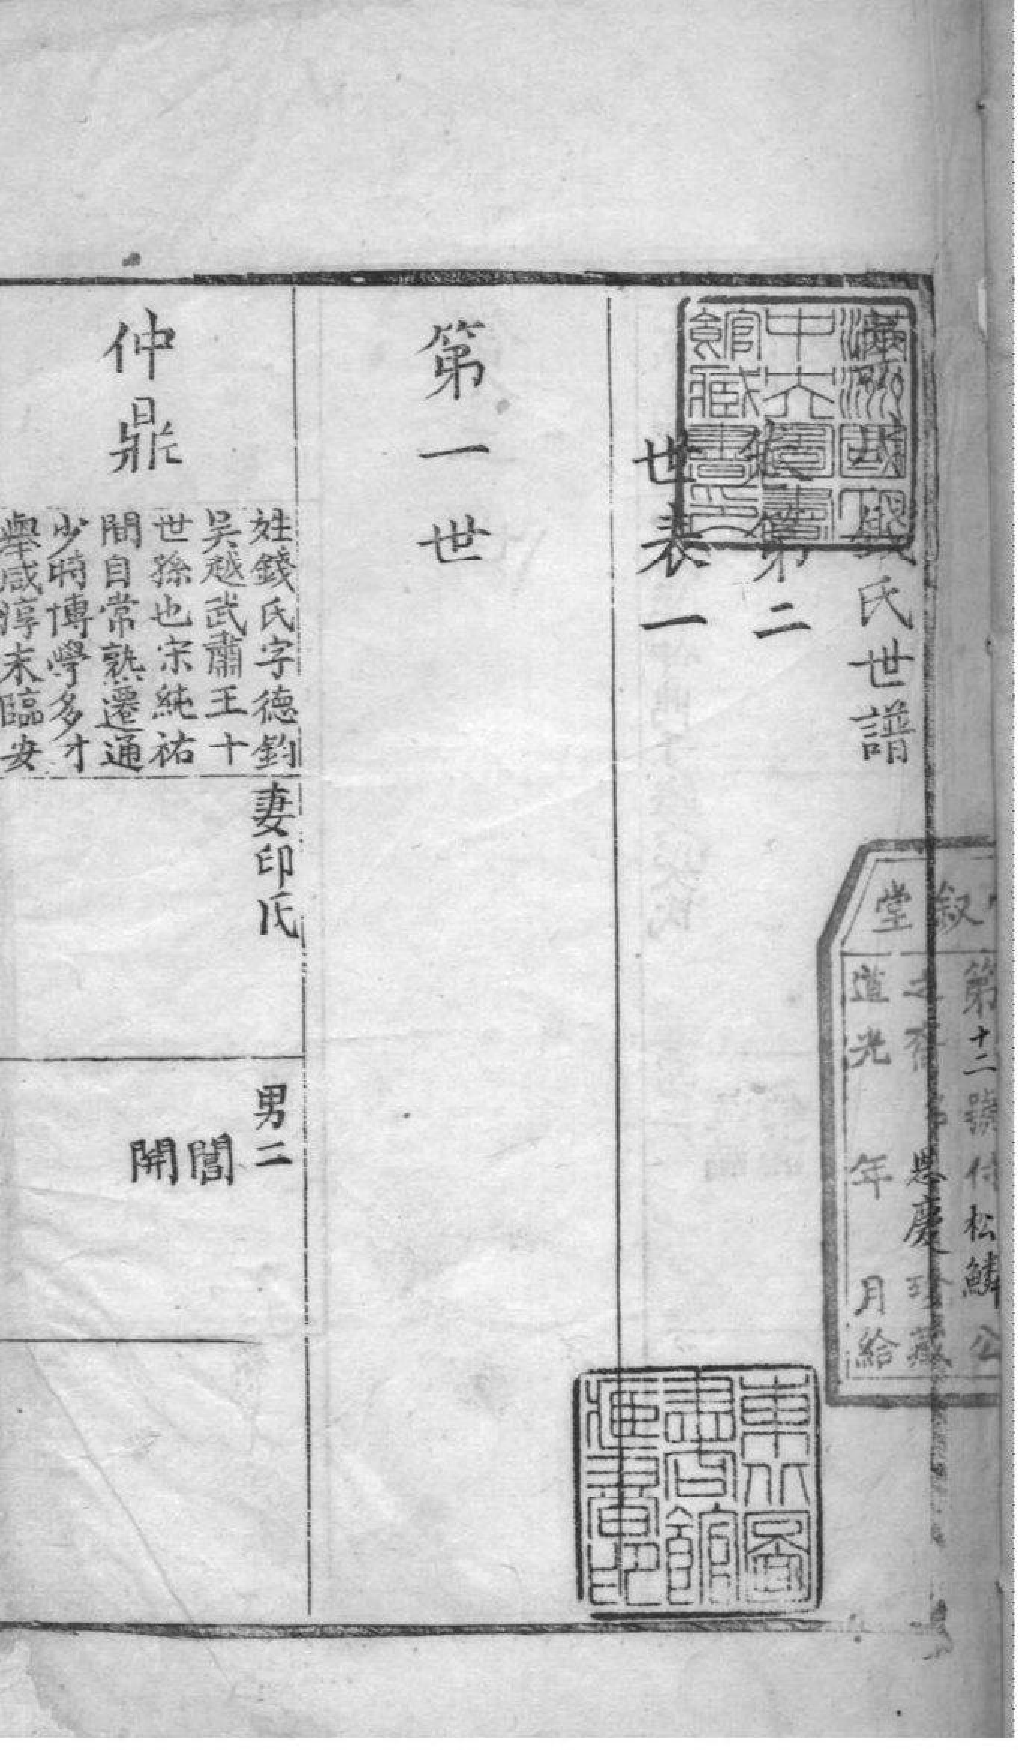 錢氏世譜
第二
世表一
第一世
仲鼎
姓錢氏字德鈞
吳越武肅王十
世孫也宋純祐
間自常熟遷通
少時博學多才
舉咸淳末臨安
妻印氏
男二
誾
開
滿洲國國立
中央圖書
館藏書印
東北圖
書館
藏書印
叙堂
第十二號付松鱗公
思慶珍藏
道光 年 月給